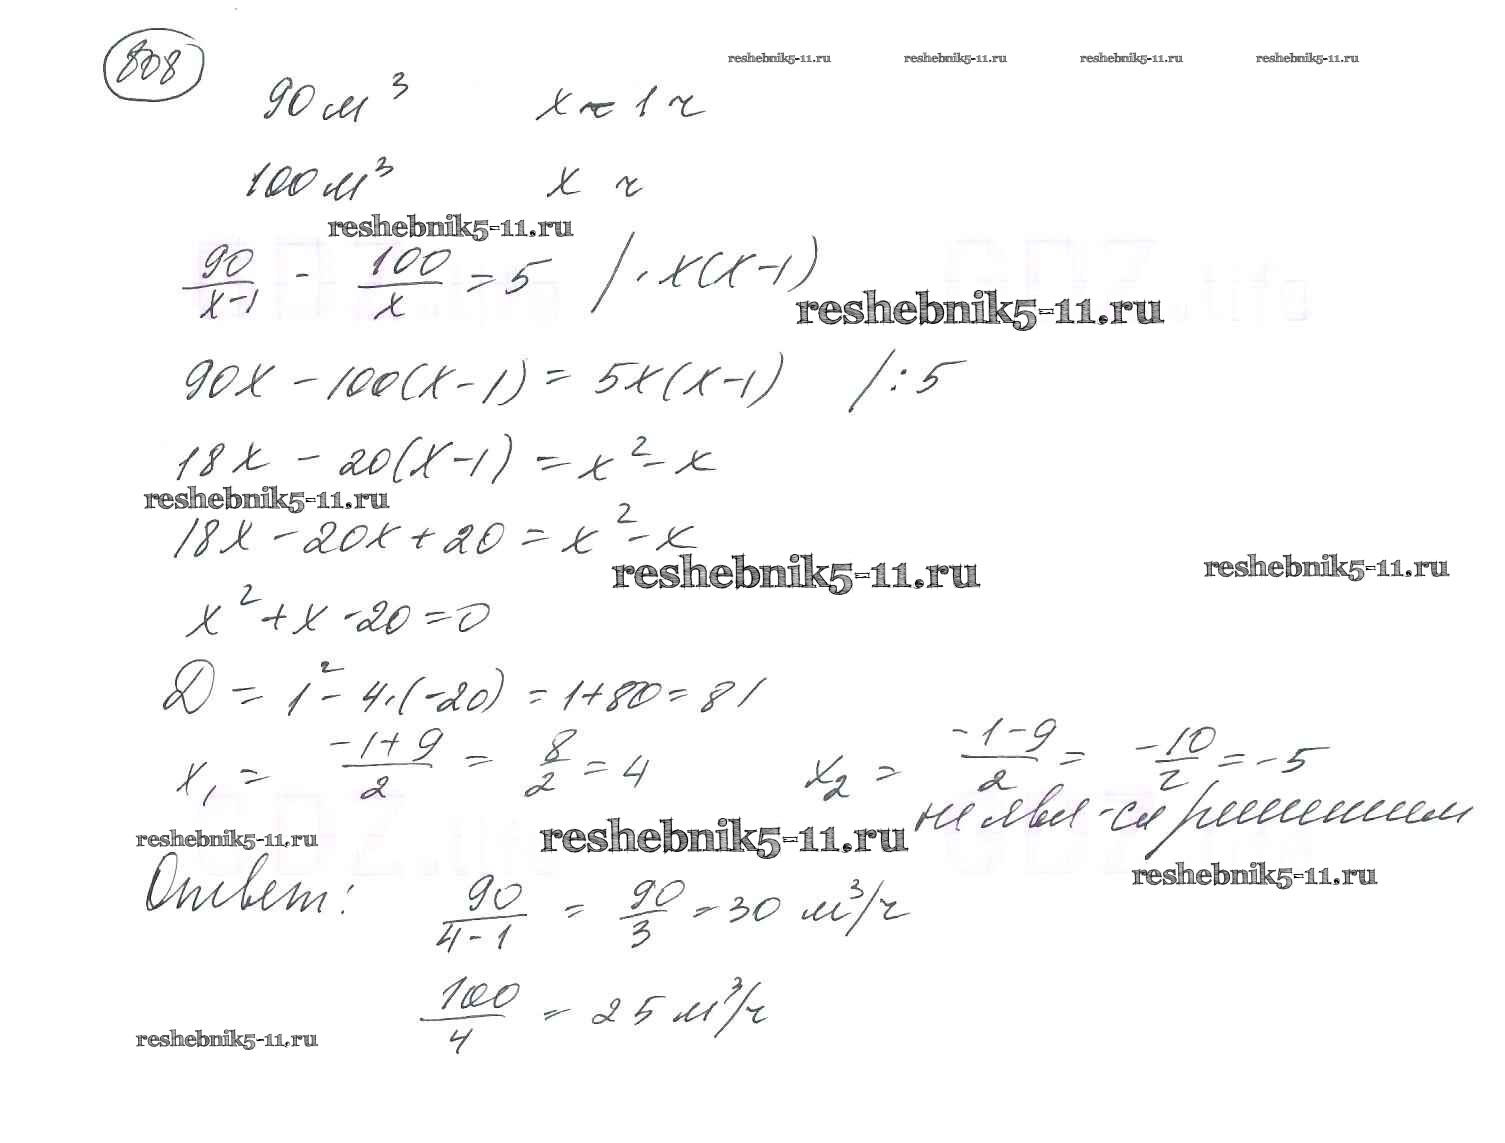 808
reshebnik5-11.ru reshebnik5-11.ru reshebnik5-11.ru reshebnik5-11.ru
90 м³ x - 1 ч
100 м³ x ч
reshebnik5-11.ru
90/(x-1) - 100/x = 5 / · x(x-1)
reshebnik5-11.ru
90x - 100(x-1) = 5x(x-1) / : 5
18x - 20(x-1) = x² - x
reshebnik5-11.ru
18x - 20x + 20 = x² - x
reshebnik5-11.ru reshebnik5-11.ru
x² + x - 20 = 0
D = 1² - 4·(-20) = 1 + 80 = 81
x₁ = (-1+9)/2 = 8/2 = 4 x₂ = (-1-9)/2 = -10/2 = -5
не явл-ся решением
reshebnik5-11.ru reshebnik5-11.ru
reshebnik5-11.ru
Ответ: 90/(4-1) = 90/3 = 30 м³/ч
100/4 = 25 м³/ч
reshebnik5-11.ru